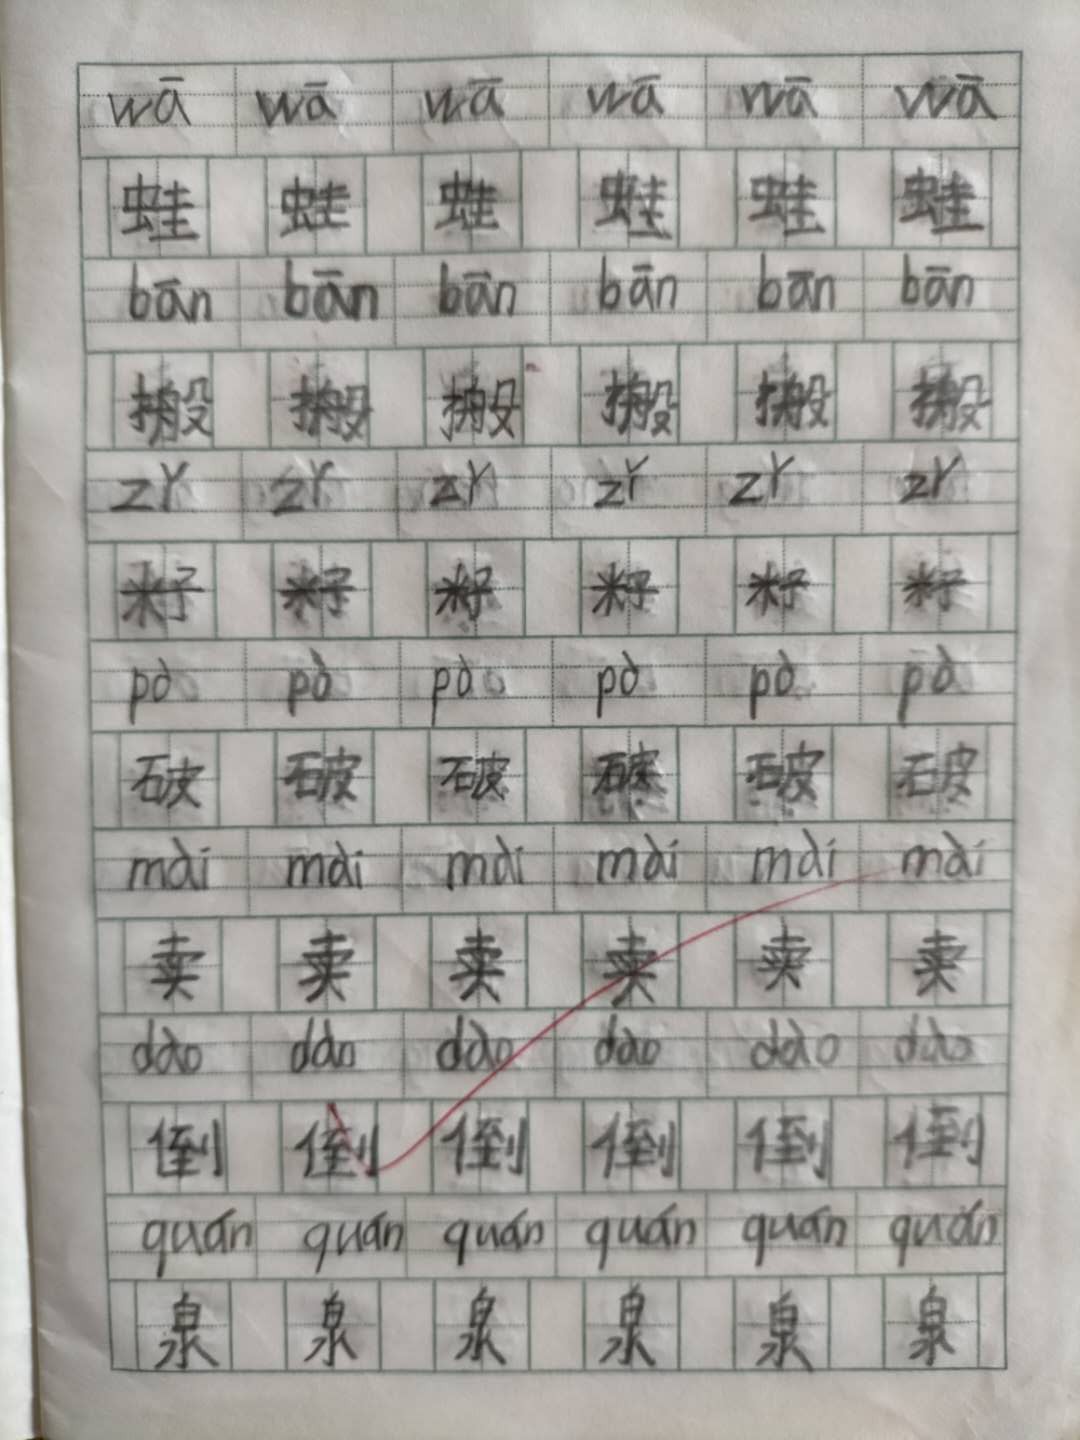 wā wā wā wā wā wā
蛙 蛙 蛙 蛙 蛙 蛙
bān bān bān bān bān bān
搬 搬 搬 搬 搬 搬
zǐ zǐ zǐ zǐ zǐ zǐ
籽 籽 籽 籽 籽 籽
pò pò pò pò pò pò
破 破 破 破 破 破
mài mài mài mài mài mài
卖 卖 卖 卖 卖 卖
dào dào dào dào dào dào
倒 倒 倒 倒 倒 倒
quán quán quán quán quán quán
泉 泉 泉 泉 泉 泉